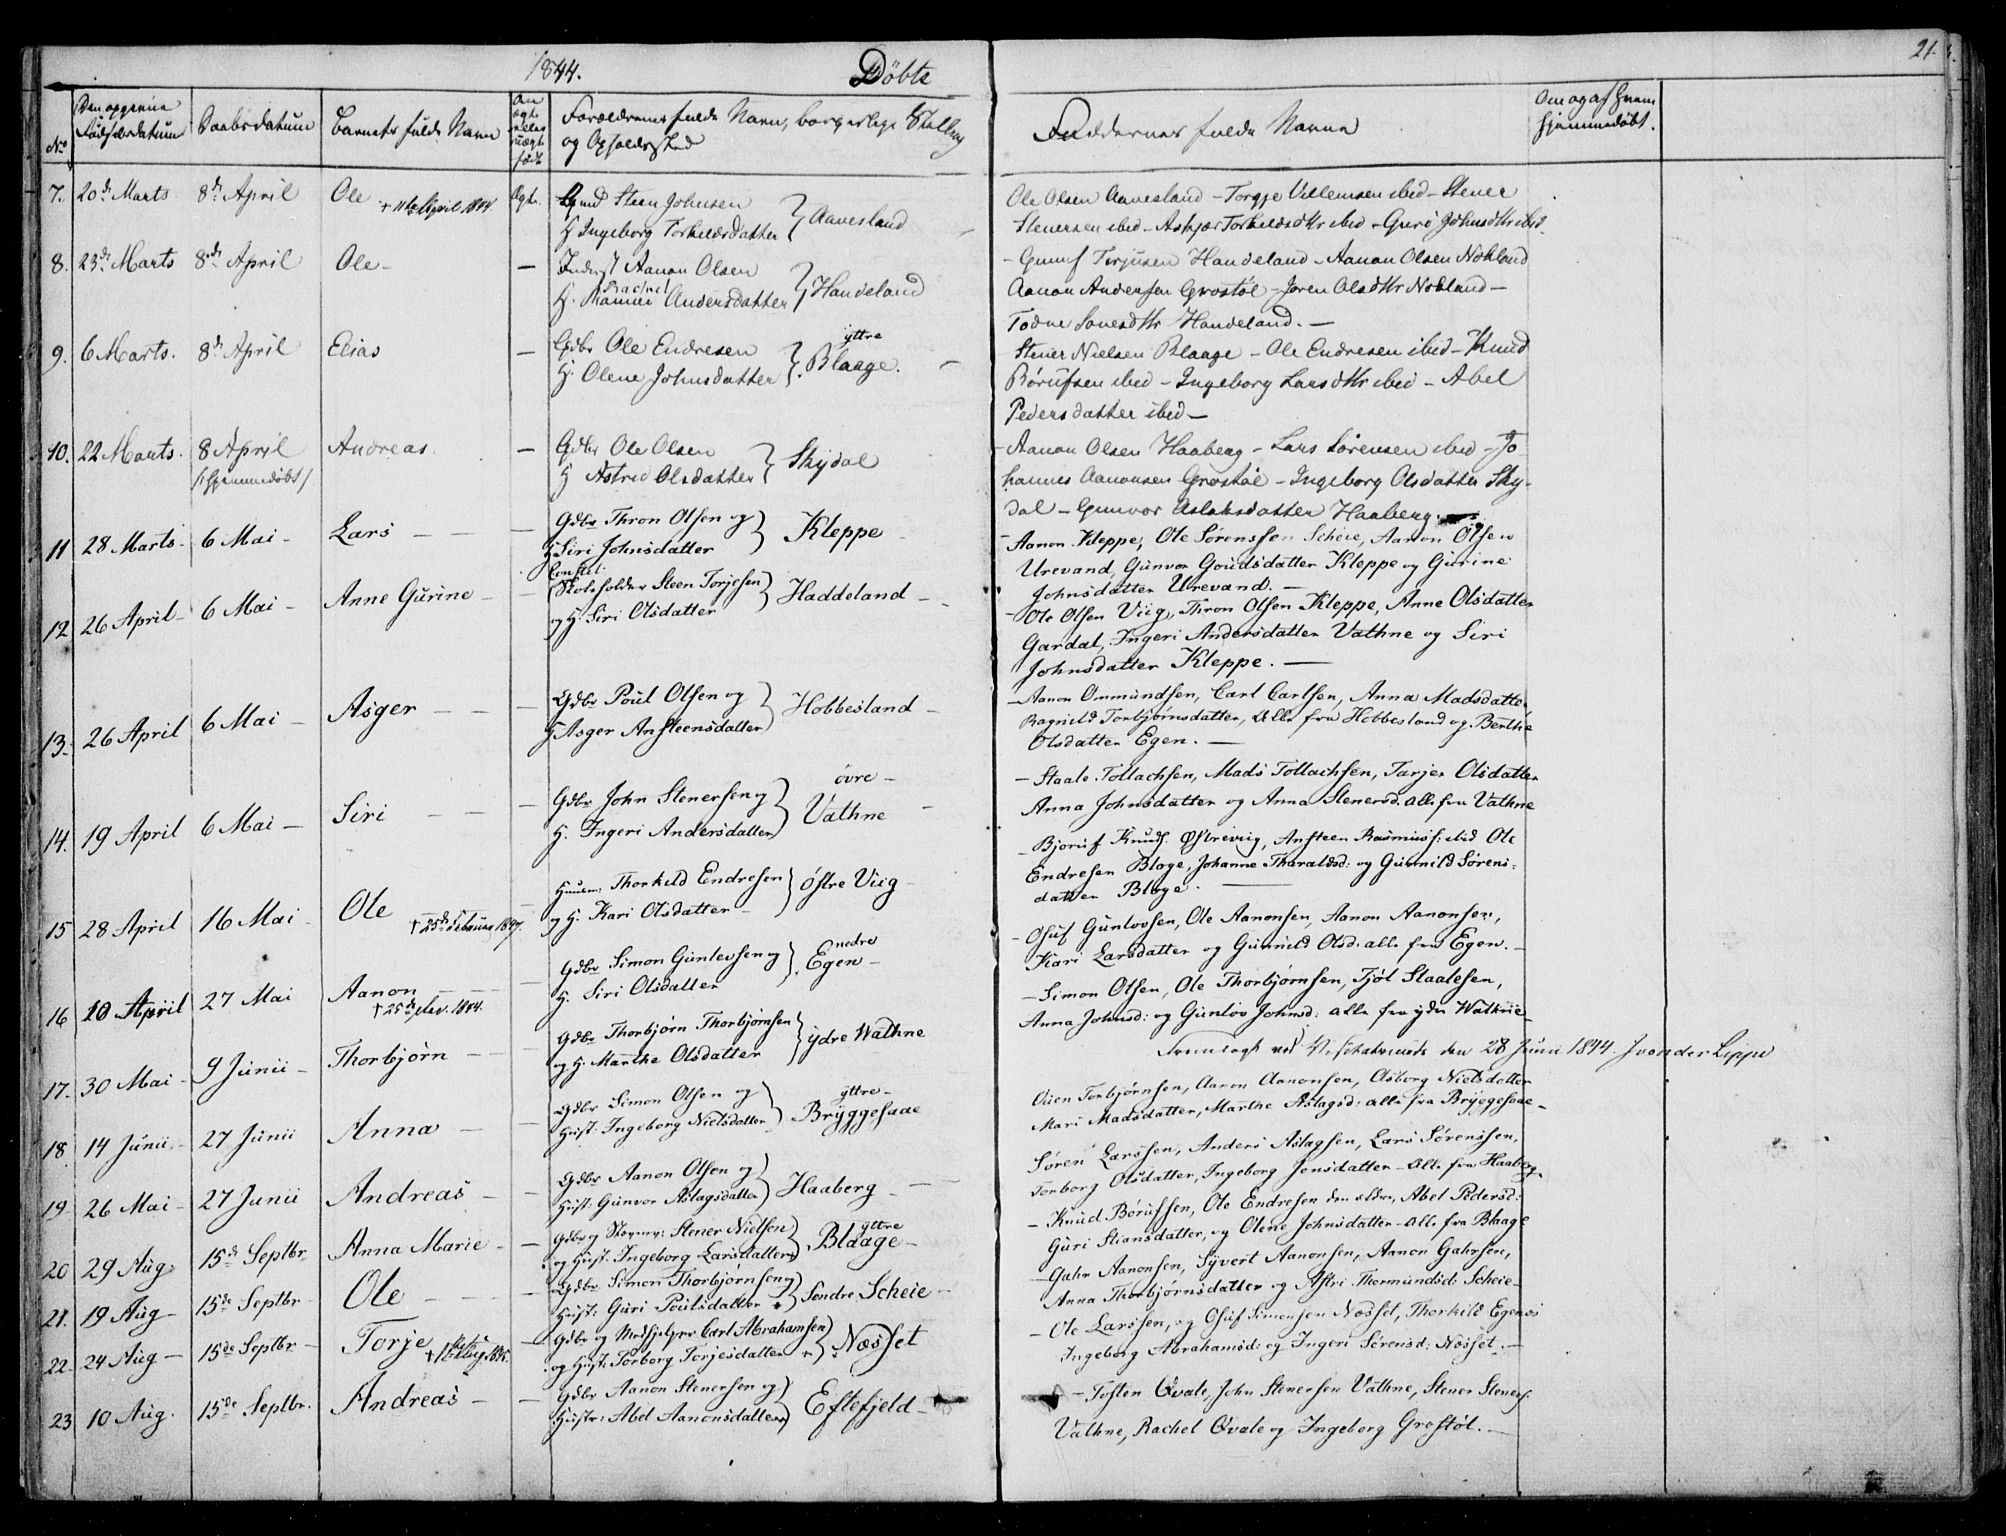 1844.
Döbte
21.
No
Den opgivne Fødselsdatum
Daabsdatum
Barnets fulde Navn
Om ægte eller uægte født
Forældrenes fulde Navn, borgerlige Stilling
og Opholdssted
Faddernes fulde Navne
Om og af hvem
hjemmedøbt.
7. 20de Marts 8de April Ole + 11te April 1844. Ægte.
Steen Johnsen
H Ingeborg Torkildsdatter } Aavesland
Ole Olsen Aavesland – Torgje Villemsen ibid – Stener
Stenersen ibid – Askjær Torkildsdtr ibid – Guro Johnsdtr ibid.
8. 23de Marts 8de April Ole – —
Inderst Aanon Olsen
H. Rachel Andersdatter } Handeland
– Gunuf Terjusen Handeland – Aanon Olsen Nökland
Aanon Andersen Grostöl – Joren Olsdtr Nökland –
Todne Handeland. —
9. 6 Marts. 8de April Elias —
Gdbr Ole Endresen
H. Olene Johnsdatter } yttre Blaage.
– Stener Nielsen Blaage – Ole Endresen ibid – Knud
Börufsen ibid – Ingeborg Larsdtr ibid – Abel
Pedersdatter ibid —
10. 22 Marts. 8 April /:hjemmedöbt/ Andreas. —
Gdbr Ole Olsen
H Astrid Olsdatter } Skydal
– Aanon Olsen Haaberg – Lars Sörensen ibid – Jo
hannes Aanonsen Grostöl – Ingeborg Olsdatter Sky-
dal – Gunvor Aslaksdatter Haaberg.
11 28 Marts – 6 Mai – Lars — — —
Gdbr Thron Olsen og
H Siri Johnsdatter } Kleppe –
– Aanon Kleppe, Ole Sörenssen Scheie, Aanon Olsen
Urevand, Gunvor Goudsdatter Kleppe og Gurine
Johnsdatter Urevand. —
12 26 April – 6 Mai – Anne Gurine – —
Constit.
Skoleholder Steen Torjesen
og H. Siri Olsdatter } Haddeland –
– Ole Olsen Viig, Thron Olsen Kleppe, Anne Olsdatter
Gardal, Ingeri Andersdatter Vathne og Siri
Johnsdatter Kleppe. —
13. 26 April 6 Mai – Asger — — —
Gdbr Poul Olsen og
H Asger Ansteensdatter } Hobbesland –
– Aanon Ommundsen, Carl Carlsen, Anna Madsdatter
Ragnild Torbjörnsdatter, alle fra Hobbesland og Berthe
Olsdatter Egen. —
14. 19 April 6 Mai – Siri — — —
Gdbr John Stenersen og
H. Ingeri Andersdatter } övre – Vathne –
– Staale Tollachsen, Mads Tollachsen, Tarjer Olsdatter
Anna Johnsdatter og Anna Stenersd. alle fra Vathne
15 28 April 16 Mai – Ole † 25de Februar 1847. —
Huusm: Thorkild Endresen
og H. Kari Olsdatter – } Östre Viig –
– Bjoruf Knuds. Østreviig, Ansteen Rasmuss: ibid Ole
Endresen Blage, Johanne Tharaldsd: og Gunnild Sörens-
datter Blage. —
16 10 April 27 Mai Aanon † 25de 1844. —
Gdbr Simon Gunlevsen og
H. Siri Olsdatter } nedre Egen –
– Osuf Gunlovsen, Ole Aanonsen, Aanon Aanonsen,
Kari Larsdatter og Gunnild Olsd: alle fra Egen. –
17. 30 Mai – 9 Junii – Thorbjörn — — —
Gdbr Thorbjörn Thorbjörnsen
og H. Marthe Olsdatter } ydre Wathne
– Simon Olsen, Ole Thorbjörnsen, Tjöl Staalesen,
Anna Johnsd: og Gunlov Johnsd: alle fra ydre Wathne
Fremlagt ved Visitatsmöde den 28 Juni 1844. J von der Lippe
18. 14 Junii – 27 Junii Anna — —
Gdbr Simon Olsen og
Hust: Ingeborg Nielsdatter } yttre – Bryggesaae
Ouen Torbjörnsen, Aanon Aanonsen, Asborg Nielsdatter
Mari Madsdatter, Marthe Aslagsd: alle fra Bryggesaae –
19 26 Mai – 27 Junii Andreas – —
Gdbr Aanon Olsen og
Hust: Gunvor Aslagsdatter } Haaberg – —
Sören Larssen, Anders Aslagsen, Lars Sörenssen,
Torborg Olsdatter, Ingeborg Jensdatter – alle fra Haaberg.
20 29 Aug: 15de Septbr. Anna Marie – —
Gdbr og Stener Nielsen
og Hust: Ingeborg Larsdatter } yttre Blaage –
– Knud Börufsen, Ole Endresen den eldre, Abel Pedersd:
Guri Stiansdatter, og Olene Johnsdatter – alle fra Blaage
21. 19 Aug – 15de Septbr – Ole — — —
Gdbr Simon Thorbjörnsen og
Hust: Guri Poulsdatter } Söndre Scheie –
– Gahr Aanonsen, Syvert Aanonsen, Aanon Gahrsen,
Anna Thorbjörnsdatter og Astri Thormundsd: Scheie –
22. 24 Aug — 15de Septbr – Torje —
Gdbr og Medhjelper Carl Abrahamsen
og Hust: Torborg Torjesdatter } Næsset
– Ole Larssen, og Osuf Simonsen Næsset, Thorkild Egenæs
Ingeborg Abrahamsd: og Ingeri Sörensd: Næsset. —
23 10 Aug. 15de Septbr. Andreas – —
Gdbr Aanon Stenersen og
Hustr: Abel Aanonsdatter } Eftefjeld –
– Tosten Qvale, John Stenersen Vathne, Stener Steners:
Vathne, Rachel Qvale og Ingeborg Grostöl. –